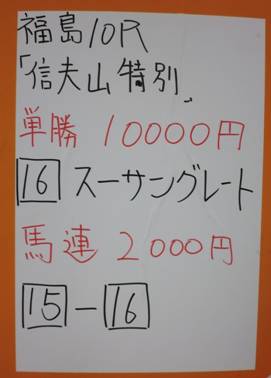 福島10R
「信夫山特別」
単勝 10000円
16 スーサングレート
馬連 2000円
15-16